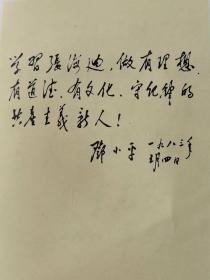 学习張海迪，做有理想、
有道德、有文化、守纪律的
共產主義新人！
鄧小平 一九八三年
五月四日